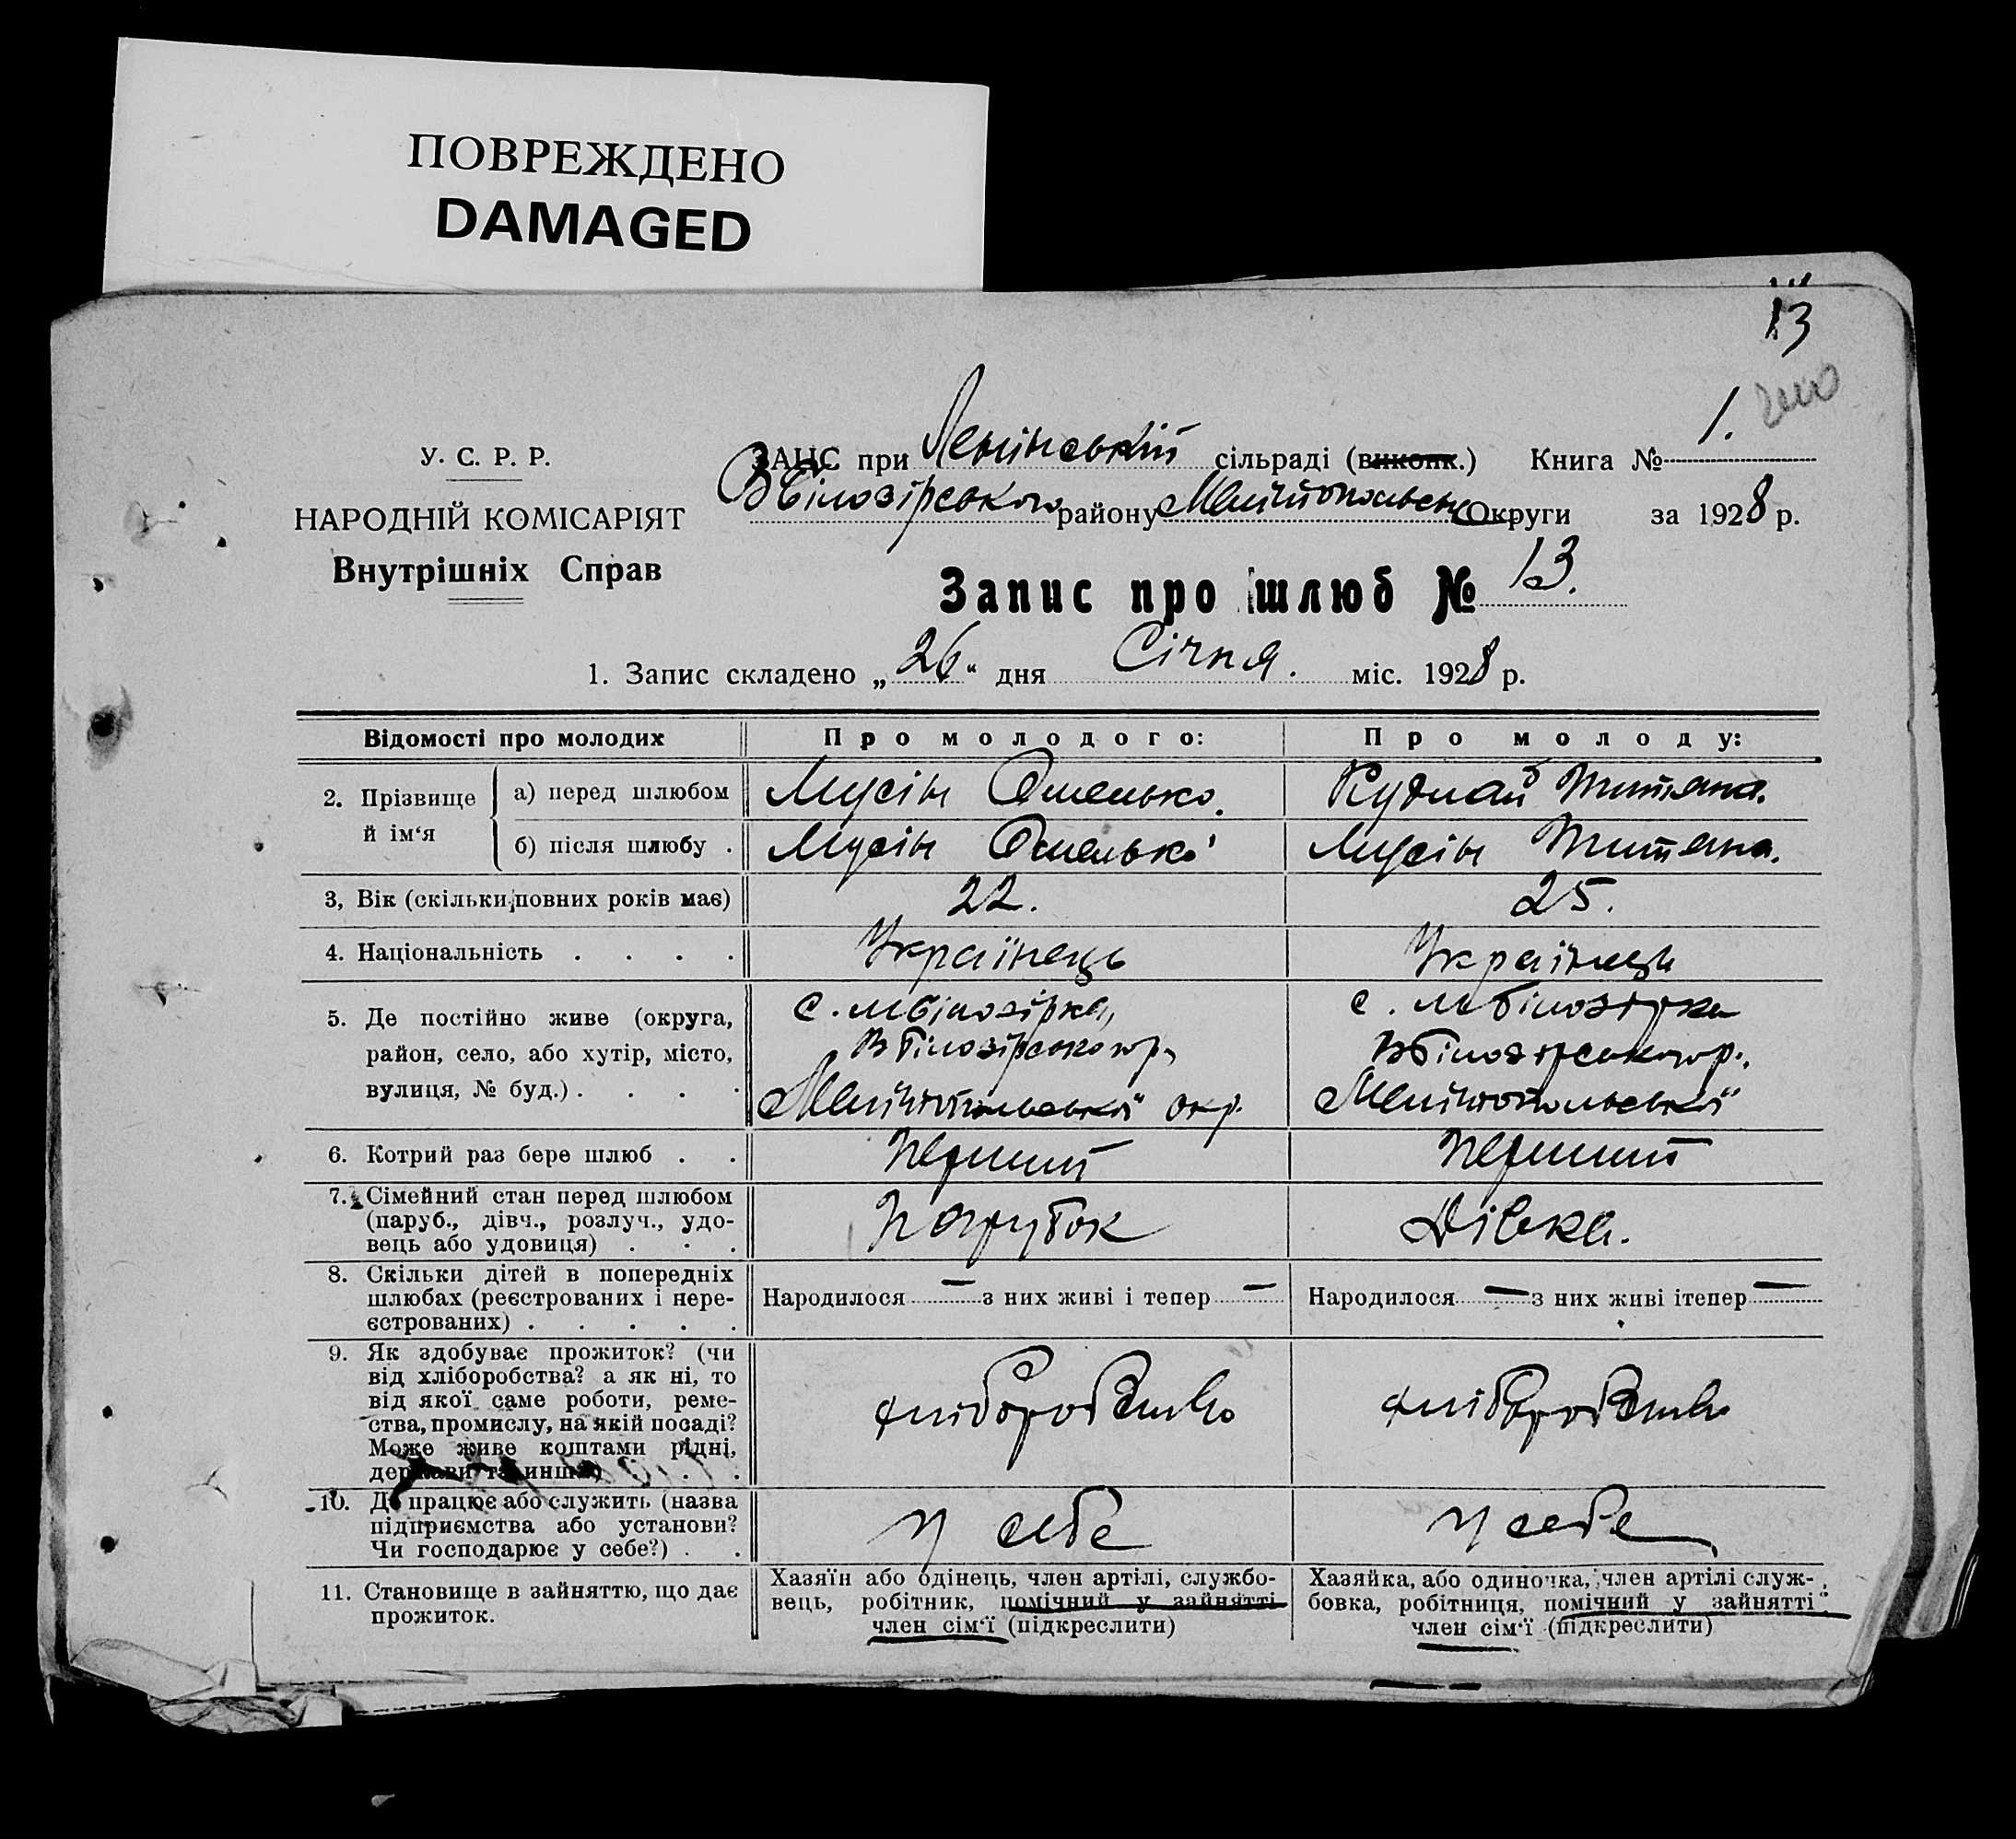 ПОВРЕЖДЕНО
DAMAGED
13
У. С. Р. Р.
НАРОДНІЙ КОМІСАРІЯТ
Внутрішніх Справ
ЗАЦС при Ленінській сільраді (виконк.) Книга № 1.
ВБілозірського району Мелітопольськ Округи за 1928 р.
Запис про шлюб № 13.
1. Запис складено „26“ дня Січня. міс. 1928 р.
Відомості про молодих
Про молодого:
Про молоду:
2. Прізвище й ім‘я
а) перед шлюбом
Мусін Омелько.
Кудлай Титяна.
б) після шлюбу .
Мусін Омелько
Мусін Титяна.
3, Вік (скільки повних років має)
22.
25.
4. Національність . . . .
Українець
Українець
5. Де постійно живе (округа,
район, село, або хутір, місто,
вулиця, № буд.) . . . .
с. мбілозірка,
Вбілозірського р,
Мелітопольської окр.
с. мбілозірка
Вбілозірського р.,
Мелітопольської
6. Котрий раз бере шлюб . .
Перший
Перший
7. Сімейний стан перед шлюбом
(паруб., дівч., розлуч., удо-
вець або удовиця) . . .
Парубок
Дівка.
8. Скільки дітей в попередніх
шлюбах (реєстрованих і нере-
єстрованих) . . . . .
Народилося — з них живі і тепер —
Народилося — з них живі ітепер —
9. Як здобуває прожиток? (чи
від хліборобства? а як ні, то
від якої саме роботи, реме-
ства, промислу, на якій посаді?
Може живе коштами рідні,
держави та инше) . .
хліборобство
хліборобство
10. Де працює або служить (назва
підприємства або установи?
Чи господарює у себе?) . .
у себе
у себе
11. Становище в зайняттю, що дає
прожиток.
Хазяїн або одінець, член артілі, службо-
вець, робітник, помічний у зайнятті
член сім‘ї (підкреслити)
Хазяйка, або одиночка, член артілі служ-
бовка, робітниця, помічний у зайнятті
член сім‘ї (підкреслити)